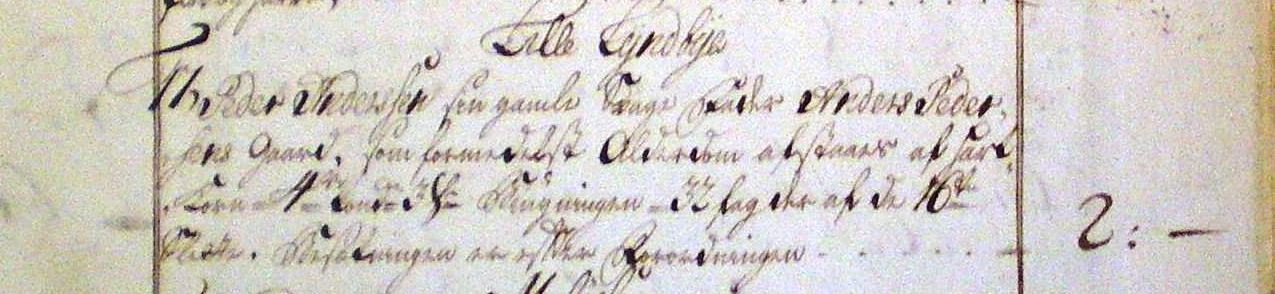 Lille Tyndbye
Peder Anderssen sin gamle Svage Fader Anders Peder-
sens Gaard, som formedelst Alderdom afstaaer af hart-
korn 4 tdr 3 Sk: Bygningen 32 fag der af de 16
Slette. Besætningen er efter Forordningen - - - -
2: -